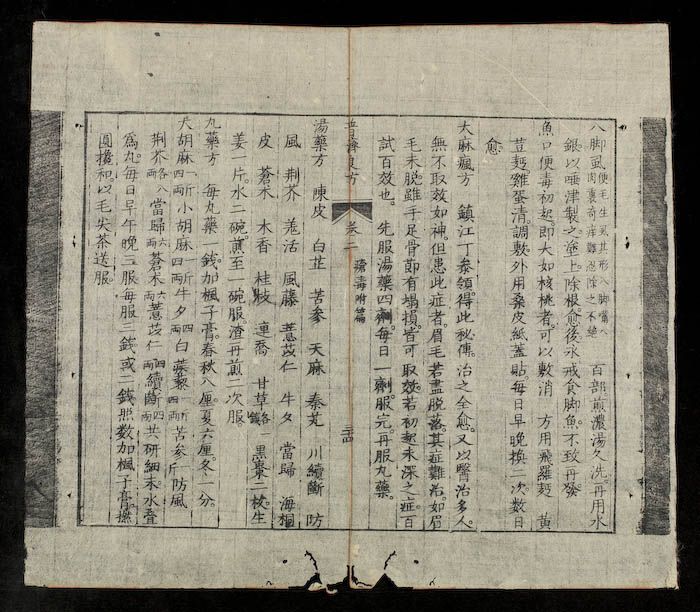 八脚虱便毛生虱其形八脚嘴入肉裏奇痒難忍除之不絶　百部煎濃湯久洗。再用水
銀以唾津製之塗上除根。愈後永戒食脚魚。不致再發
魚口便毒初起。即大如核桃者。可以敷消　方用飛羅麪　黄
荳麪雞蛋清。調敷外用桑皮紙蓋貼每日早晚換二次數日
愈
大麻瘋方　鎮江丁泰領得此秘傳。治之全愈。又以醫治多人。
無不取效如神。但患此症者。眉毛若盡脫落其症難治。如眉
毛未脱。雖手足骨節有塌損。皆可取效。若初起未深之症。百
試百效也。　先服湯藥四劑。每日一劑。服完。再服丸藥。
普濟良方　卷二　瘡毒附篇
湯藥方　陳皮　白芷　苦參　天麻　秦艽　川續斷　防
風　荆芥　羗活　風藤　薏苡仁　牛夕　當歸　海桐
皮　蒼术　木香　桂枝　連喬　甘草各錢　黑棗二枚。生
姜一片。水二碗。煎至一碗服渣再煎二次服。
丸藥方　每丸藥一錢。加楓子膏。春秋八厘。夏六厘。冬一分。
大胡麻四兩　小胡麻四兩　牛夕四兩　白蒺藜　苦參一斤　防風
荆芥各八兩　當歸六兩　蒼术六兩　薏苡仁四兩　續斷四兩　共研細末水叠
為丸。每日早午晚三服。每服三錢或二錢。照數加楓子膏。攪
圓攙和以毛尖茶送服